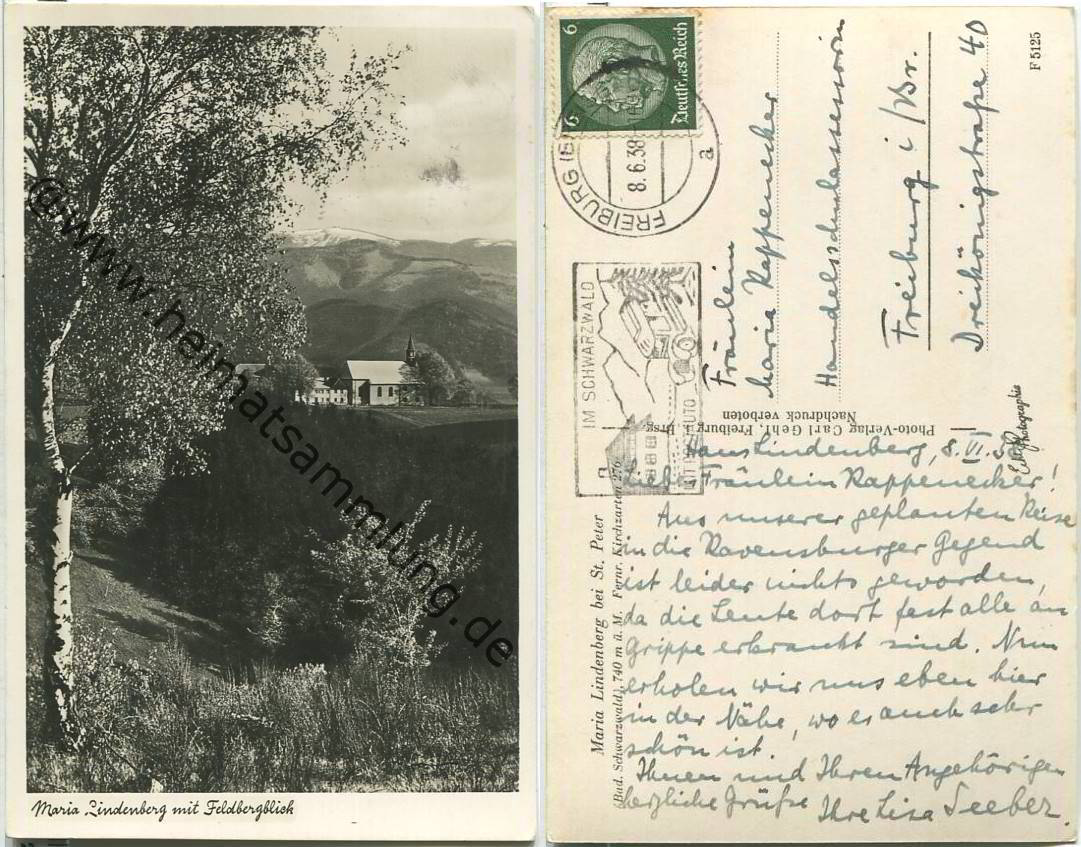 @www.heimatsammlung.de
Maria Lindenberg mit Feldbergblick
6
6
Deutsches Reich
FREIBURG (B
8.6.38
a
IM SCHWARZWALD
Fräulein
Maria Rappenecker
Handelsschulassessorin
Freiburg i/Br.
Dreikönigstraße 40
F 5125
Photo-Verlag Carl Gehr, Freiburg i. Brsg.
Nachdruck verboten
Echte Photographie
Maria Lindenberg bei St. Peter
(Bad. Schwarzwald), 740 m ü. M. Fernr. Kirchzarten 276
Haus Lindenberg, 8. VI. 38
Lieb. Fräulein Rappenecker!
Aus unserer geplanten Reise
in die Ravensburger Gegend
ist leider nichts geworden,
da die Leute dort fast alle an
Grippe erkrankt sind. Nun
erholen wir uns eben hier
in der Nähe, wo es auch sehr
schön ist.
Ihnen und Ihren Angehörigen
herzliche Grüße Ihre Lisa Seeber.